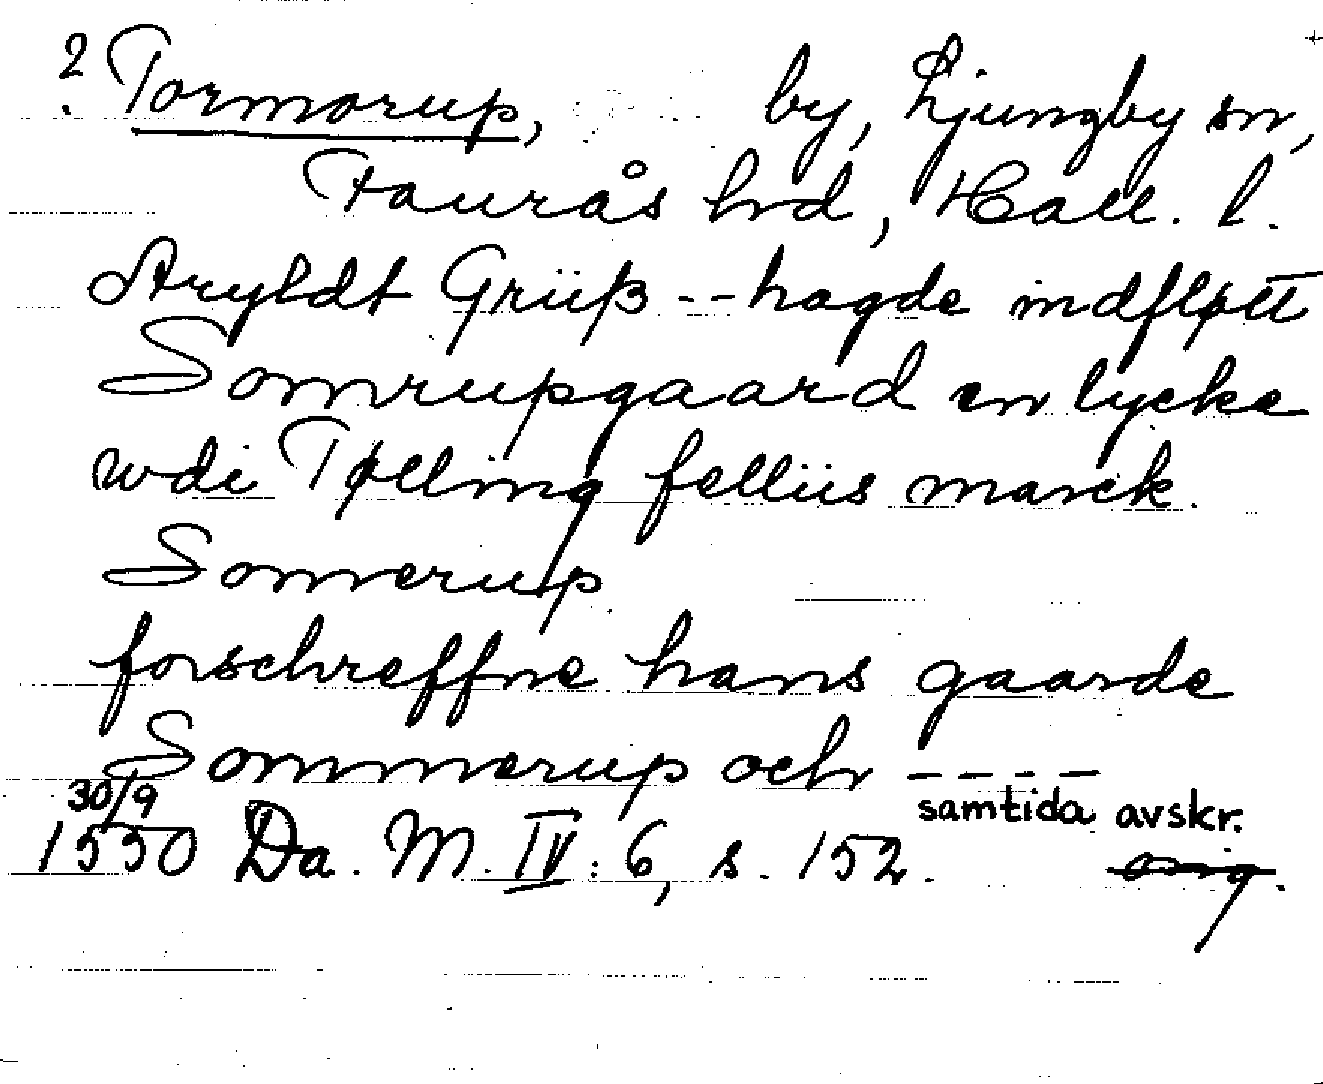 ? Tormorup, by, Ljungby sn,
Faurås hrd, Hall. l.
Aryldt Grüβ -- hagde indfløtt
Somrupgaard en lycke
wdi Tølling fellüs marck.
Somerup
forschreffne hans gaarde
Sommerup och ----
samtida avskr.
30/9
1550 Da. M. IV: 6, s. 152. orig.